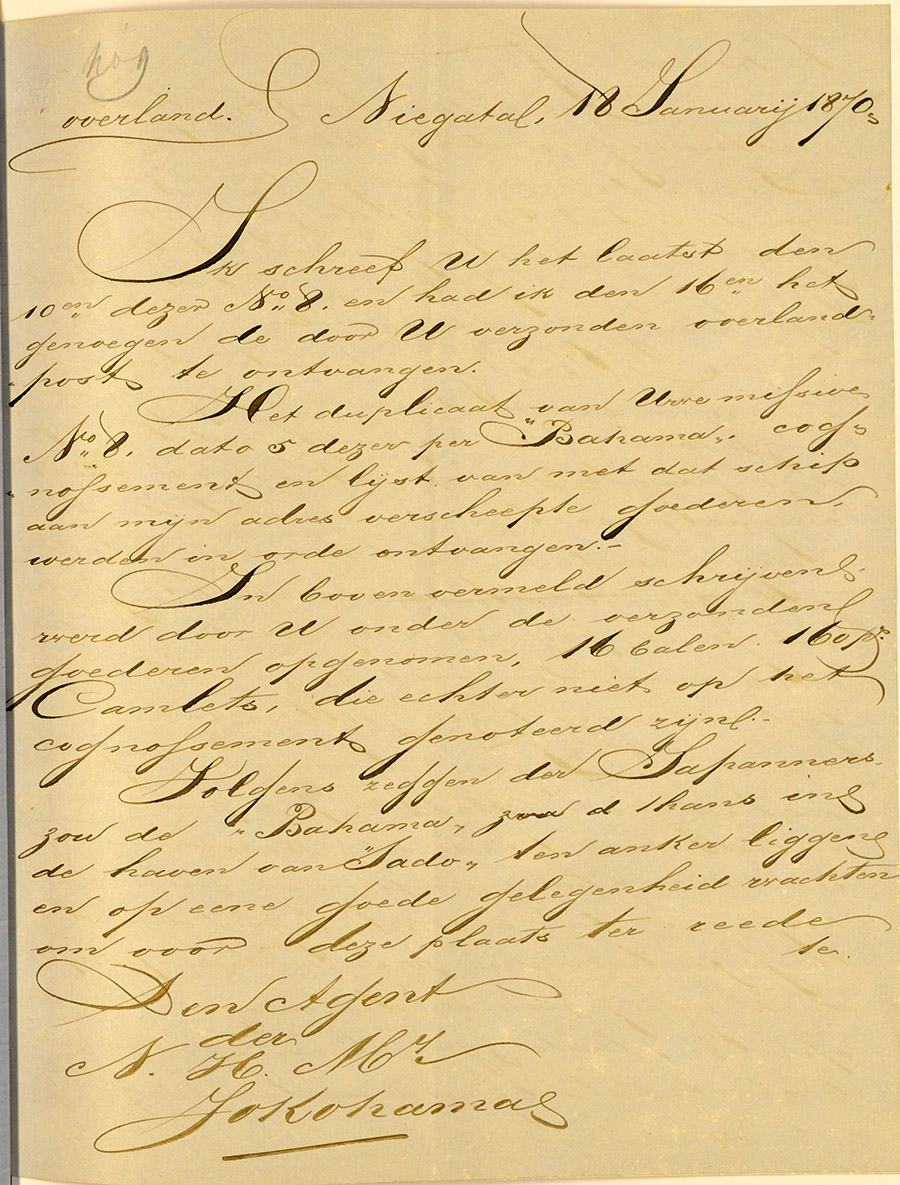 overland. Niegata, 18 Januarij 1870
Ik schreef U het laatst den
10en dezer No. 8. en had ik den 16en het
genoegen de door U verzonden overland-
post te ontvangen.
Het duplicaat van Uwe missive
No. 8, dato 5 dezer per "Bahama", cog-
nossement en lijst van met dat schip
aan mijn adres verscheepte goederen,
werden in orde ontvangen.-
In boven vermeld schrijven
werd door U onder de verzonden
goederen opgenomen, 16 balen 160 ps.
Camlets, die echter niet op het
cognossement genoteerd zijn.-
Volgens zeggen der Japanners
zou de "Bahama", thans in
de haven van "Sado" ten anker liggen
en op eene goede gelegenheid wachten
om voor deze plaats ter reede
te
Den Agent
der
N. H. Mij
Jokohama